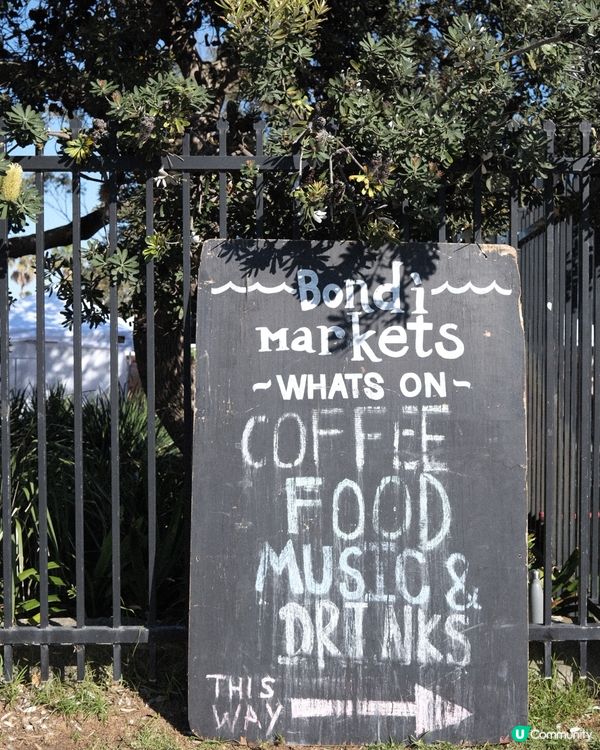 Bondi
Markets
~WHATS ON~
COFFEE
FOOD
MUSIC &
DRINKS
THIS
WAY
U Community